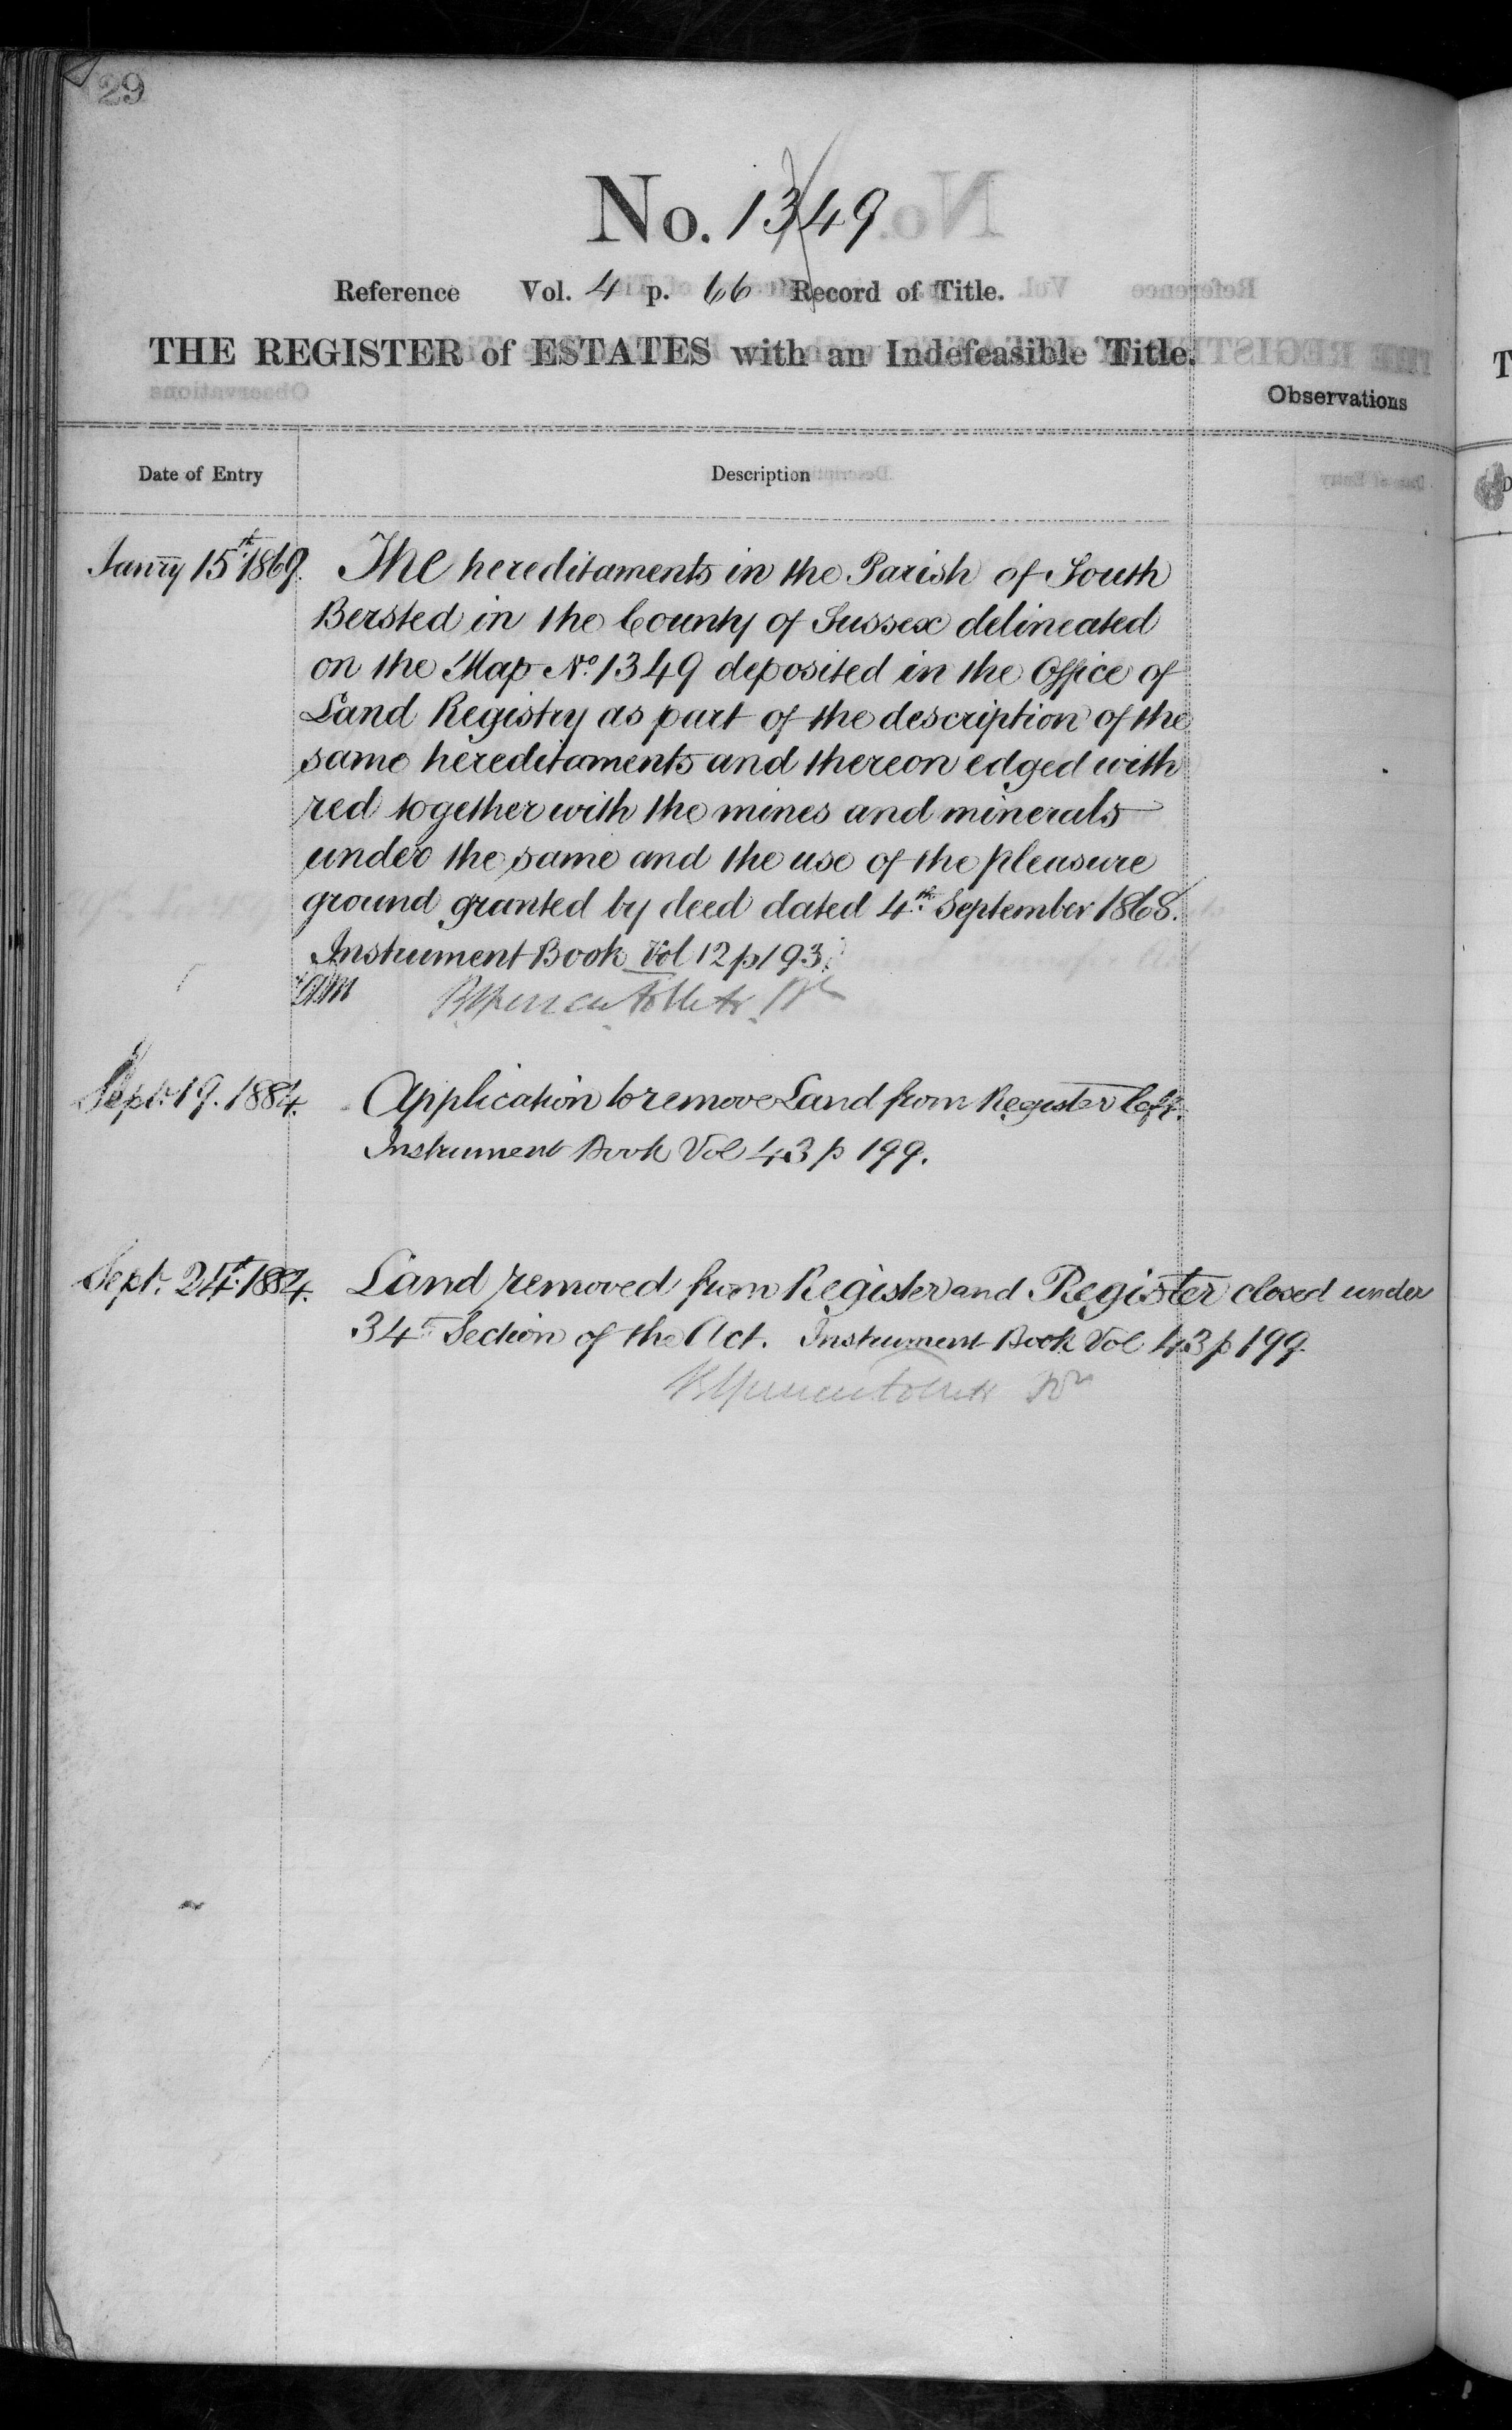 29
No. 1349
Reference Vol. 4 p. 66 Record of Title.
THE REGISTER of ESTATES with an Indefeasible Title.
Observations
Date of Entry Description
Janry 15th 1869. The hereditaments in the Parish of South
Bersted in the County of Sussex delineated
on the Map No. 1349 deposited in the Office of
Land Registry as part of the description of the
same hereditaments and thereon edged with
red together with the mines and minerals
under the same and the use of the pleasure
ground granted by deed dated 4th September 1868.
Instrument Book Vol 12 p 193.
Sept. 19. 1884. Application to remove Land from Register left.
Instrument Book Vol 43 p 199.
Sept. 24th 1884. Land removed from Register and Register closed under
34th Section of the Act. Instrument Book Vol 43 p 199.